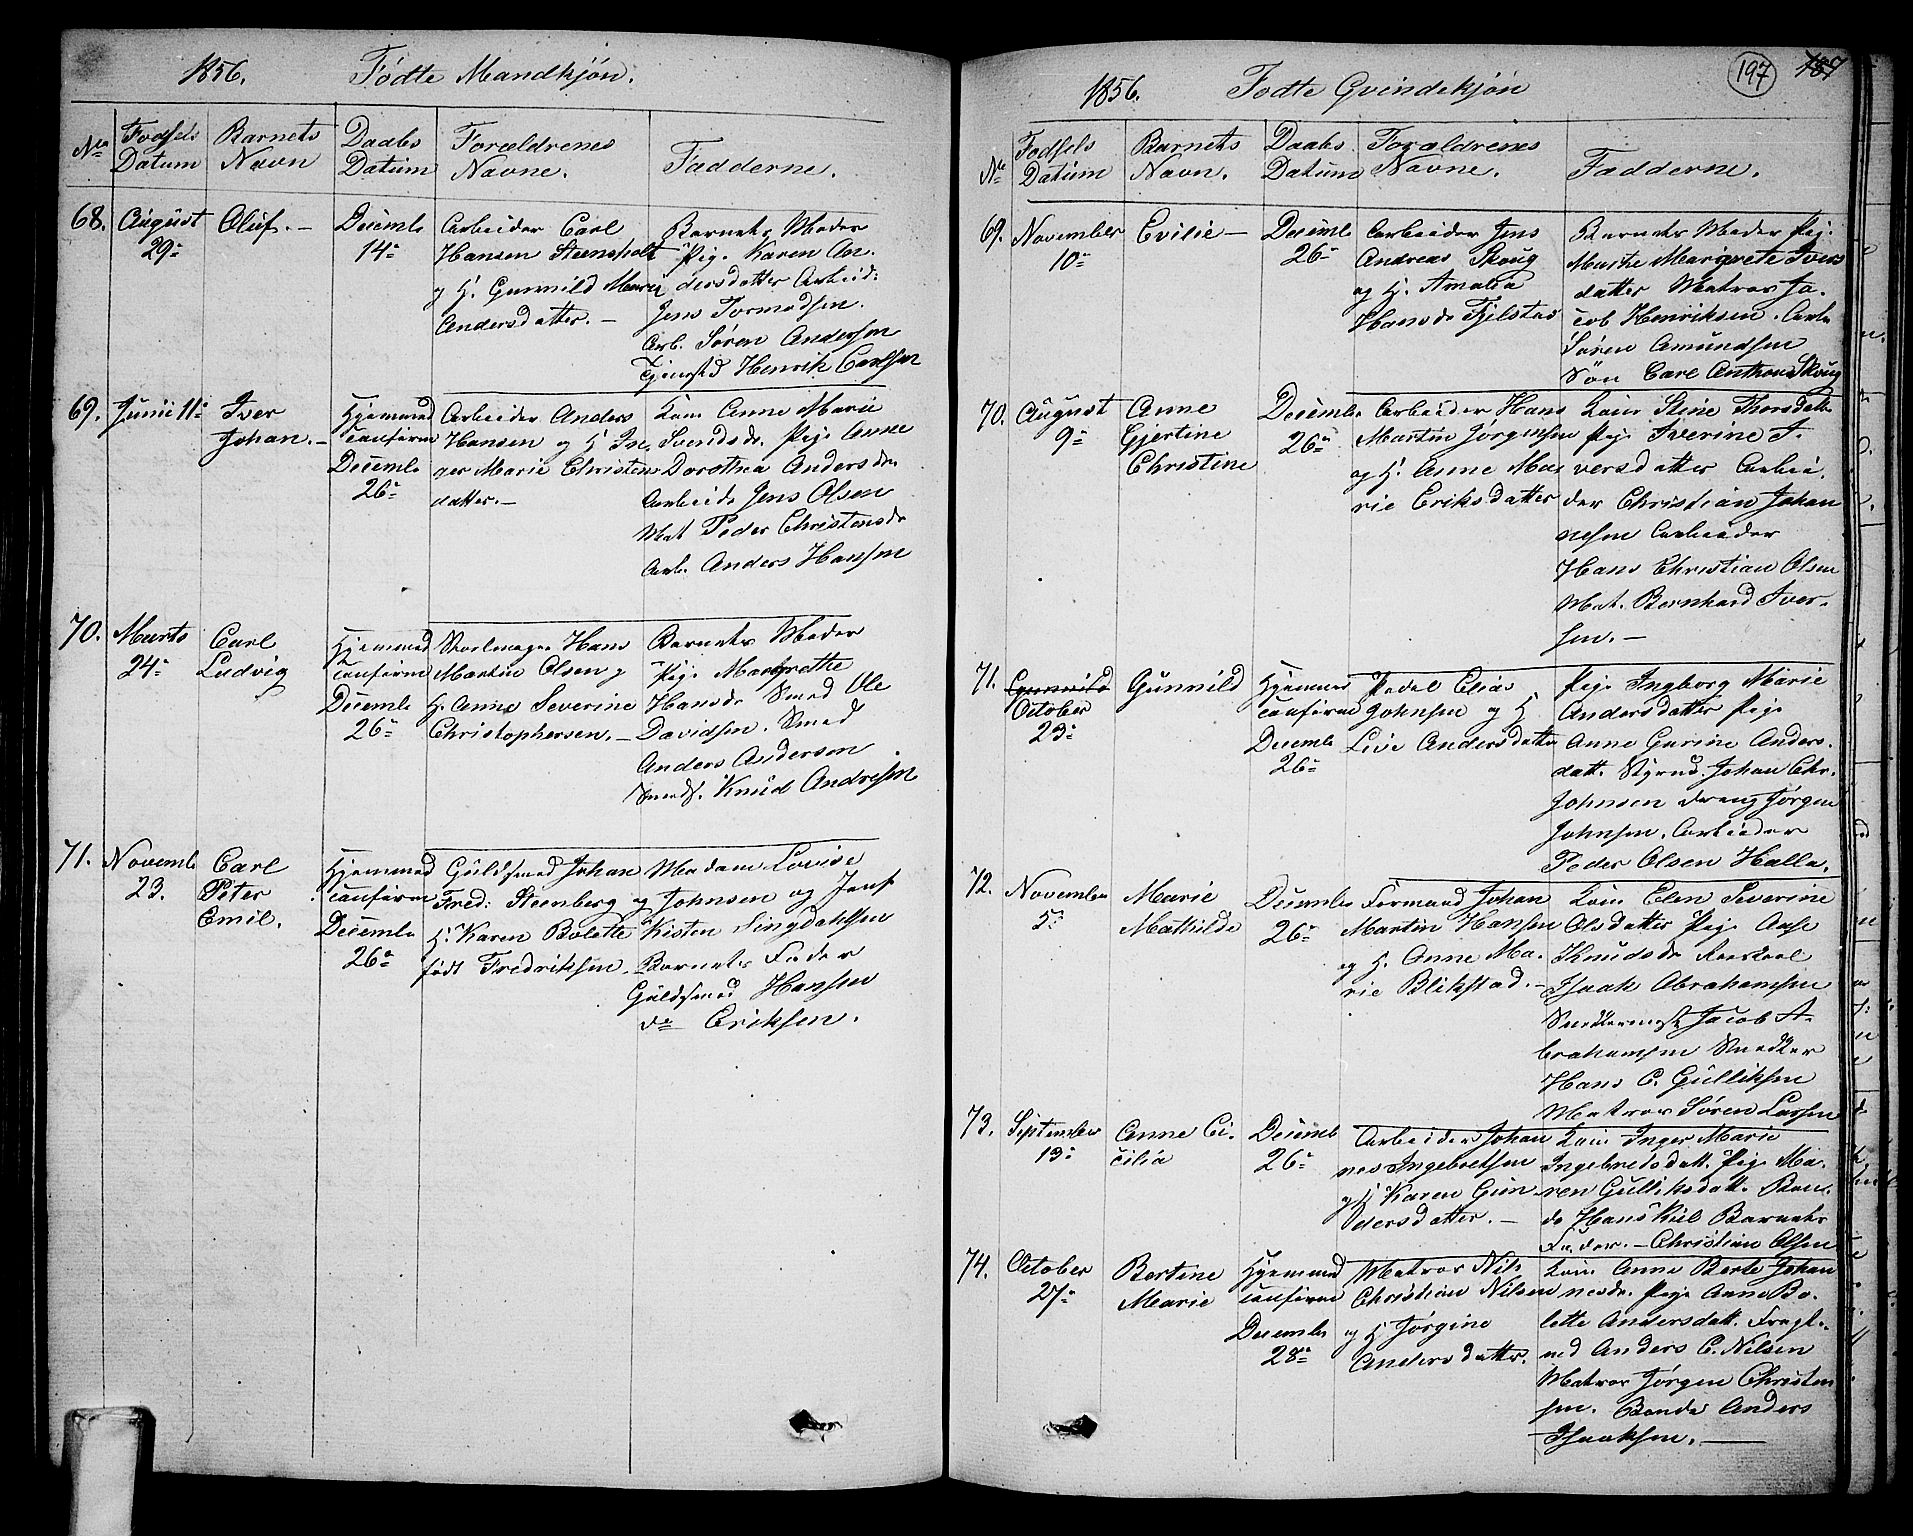 1856. Födte Mandkjön.
No Fodsels Datum
Barnets Navn
Daabs Datum
Forældrenes Navne.
Fadderne.
68. August 29de
Oluf. —
Decembr 14de
Arbeider Carl
Hansen Steensholt
og H. Gunnild Marie
Andersdatter. —
Barnets Moder
Pige Karen An-
dersdatter Arbeid:
Jens Tormodsen.
Arb. Søren Andersen
Tjenstd Henrik Carlsen
69. Junii 11te
Iver
Johan. —
Hjemmed
confirm
Decembr
26de
Arbeider Anders
Hansen og H. In-
ger Marie Christens
datter. —
Kone Anne Marie
Svendsdr. Pige Anne
Dorothea Andersdr.
Arbeidr Jens Olsen
Mat Peder Christensdr
Arb. Anders Hansen
70. Marts
24de
Carl
Ludvig
Hjemmed
confirm
Decembr
26de
Hans
Martin Olsen og
H. Anne Severine
Christophersen. —
Barnets Moder
Pige Margrethe
Hansdr Smed Ole
Davidsen. Smed
Anders Andersen
Smeds. Knud Andresen
71. Novembr
23.
Carl
Peter
Emil.
Hjemmed
confirm
Decembr
26de
Guldsmed Johan
Fred: Steenberg og
H. Karen Bolette
født Fredriksen.
Madam Lovise
Johnsen og Jomf
Kisten Lingdahlsen
Barnets Fader
Guldsmed Hansen
do Eriksen.
197 187
1856. Fodte Qvindekjön
No Fodsels Datum
Barnets Navn.
Daabs Datum
Forældrenes Navne.
Fadderne.
69. November
10de
Evilie —
Decembr
26de
Arbeider Jens
Andreas Skoug
og H. Amalia
Hansdr Fjelstad
Barnets Moder Pig:
Marthe Margrete Ivers
datter Matros Ja-
cob Henriksen. Arbr
Søren Amundsen
Søn Carl Anthon Skoug
70. August
9de
Anne
Gjertine
Christine
Decembr
26de
Arbeider Hans
Martin Jørgensen
og H. Anne Ma-
rie Eriksdatter
Kone Stine Thorsdatt
Pige Iverine I-
versdatter Arbei-
der Christian Johan
nesen Arbeider
Hans Christian Olsen
Mat. Bernhard Iver-
sen. —
71. Gunnild
October
23de
Gunnild
Hjemmed
confirm
Decembr
26de
Elias
Johnsen og H.
Live Andersdatter
Pige Ingborg Marie
Andersdatter Pige
Anne Gurine Anders-
datt. Styrmd. Johan Chr.
Johnsen dreng Jørgen
Johnsen. Arbeider
Peder Olsen Halla.
72. November
5te
Marie
Mathilde
Decembr
26de
Formand Johan
Martin Hansen
og H. Anne Ma-
rie Blikstad. —
Kone Elen Severine
Olsdatter Pige Aase
Knudsdr
Isaak Abrahamsen
Snedkermest Jacob A-
brahamsen Snedker
Hans C. Gulliksen
Matros Søren Larsen
73. September
13de
Anne Ce-
cilia
Decemb
26de
Arbeider Johan
nes Ingebretsen
og H. Karen Gun-
dersdatter. —
Kone Inger Marie
Ingebretsdatt. Pige Ma-
ren Gulliksdatt. Bon-
de Hans Kiil Barnets
Fader. — Christian Olsen
74. October
27de
Bertine
Marie
Hjemmed
confirm
Decembr
28de
Matros Nils
Christian Nilsen
og H. Jørgine
Andersdatter.
Kone Anne Berte Johan
nesdr. Pige Anne Bo-
lette Andersdatt. Fragt-
md Anders C. Nilsen
Matros Jørgen Christen
sen. Bonde Anders
Isaaksen. —